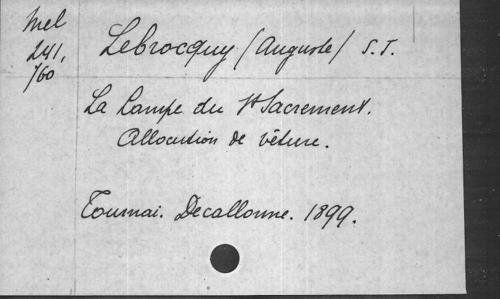 Mel
241,
760
Lebrocquy (Auguste) S.T.
La Lampe du St Sacrement.
Allocution de vêture.
Tournai. Decallonne. 1899.